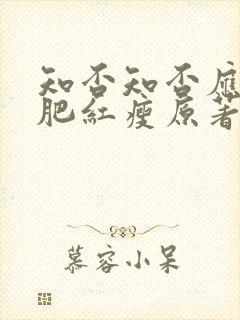 知否知否應
肥紅瘦原著
慕容小呆